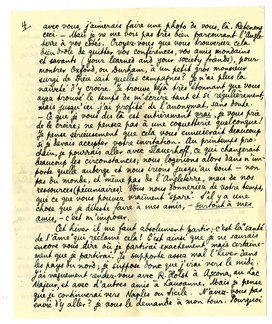 4
avec vous, j'aimerais faire une photo de vous, là. Retenons
ceci – Mais je ne me vois pas très bien parcourant l'Angle-
terre à vos côtés. Croyez-vous que vous trouverez cela
bien drôle de quitter vos conférences, vos amis mondains
et savants (your learned and your society friends), pour
montrer Oxford, ou Durham, à un petit gros monsieur
surgi de Dieu sait quelles campagnes? Je n'ai plus la
naïveté d'y croire. Je trouve déjà très étonnant que vous
ayez trouvé le temps de m'écrire tant et si régulièrement,
mais jusqu'ici j'ai profité de l'anonymat, sans doute.
– Ce que je vous dis là est entièrement vrai, je vous prie
de le croire, ne pensez pas à une coquetterie quelconque!
Je pense sérieusement que cela vous ennuierait beaucoup
si je devais accepter votre invitation. – Au printemps pro-
chain, je pourrais aller avec
beaucoup les circonstances, nous logerions alors dans n'im-
porte quelle auberge et nous irions jusqu'au bout – non
pas du monde, et même pas de l'Angleterre, mais de nos
ressources (pécuniaires). Vous nous donneriez de votre temps,
ce que vous pouvez vraiment. S'il y a une
chose que je déteste faire à mes amis, – surtout à mes
amis, – c'est m'imposer.
Cet hiver il me faut absolument partir; c'est la santé
de l'âme qui réclame cela! C'est ainsi que je ne saurais
encore vous dire où je partirai exactement, mais certaine-
ment que je partirai. Je supporte assez mal l'hiver dans
les pays du nord; je suppose donc que j'irai vers le midi.
J'ai vaguement rendez-vous avec à Ascona, au Lac
Majeur, et avec d'autres amis à Lausanne. Mais je pense
que je continuerai vers Naples ou Sicile. N'avez-vous pas
envie d'y aller? je vous le demande à mon tour. Pourquoi